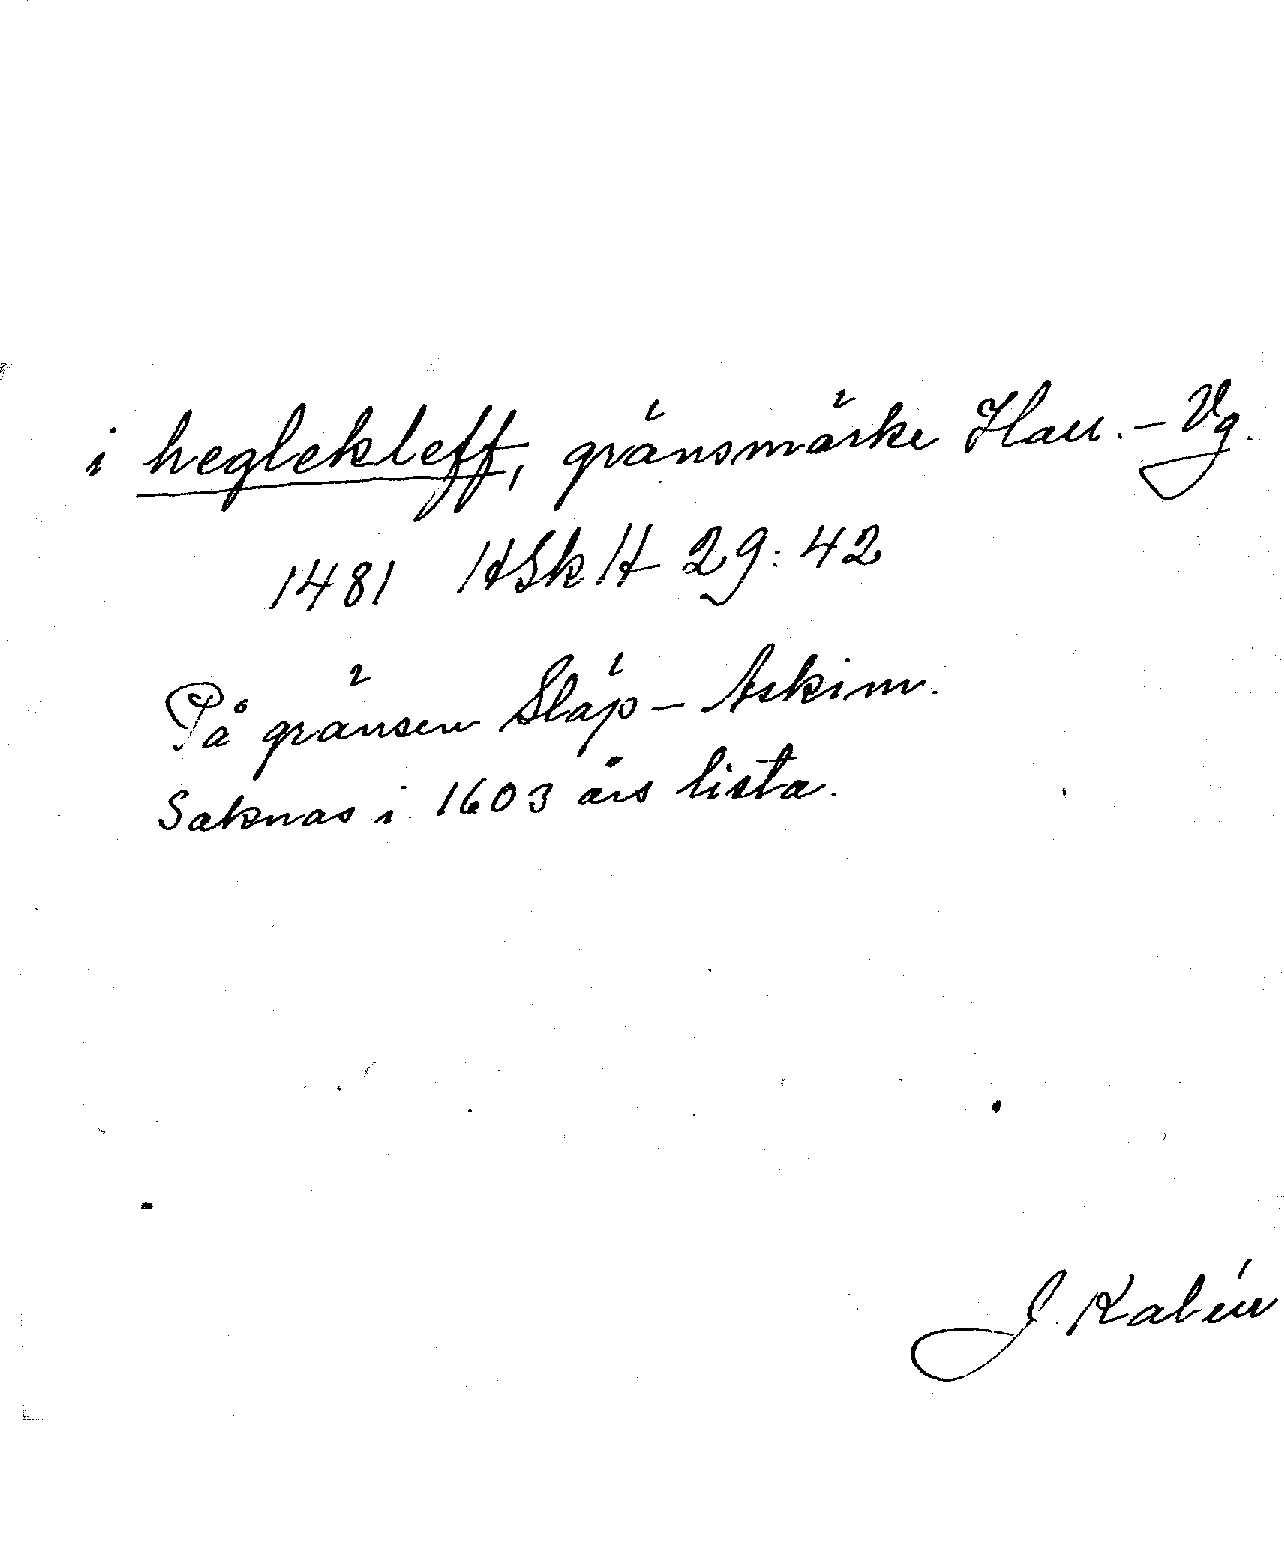 i heglekleff, gränsmärke Hall.-Vg.
1481 HSkH 29:42
På gränsen Släp-Askim.
Saknas i 1603 års lista.
J. Kalén